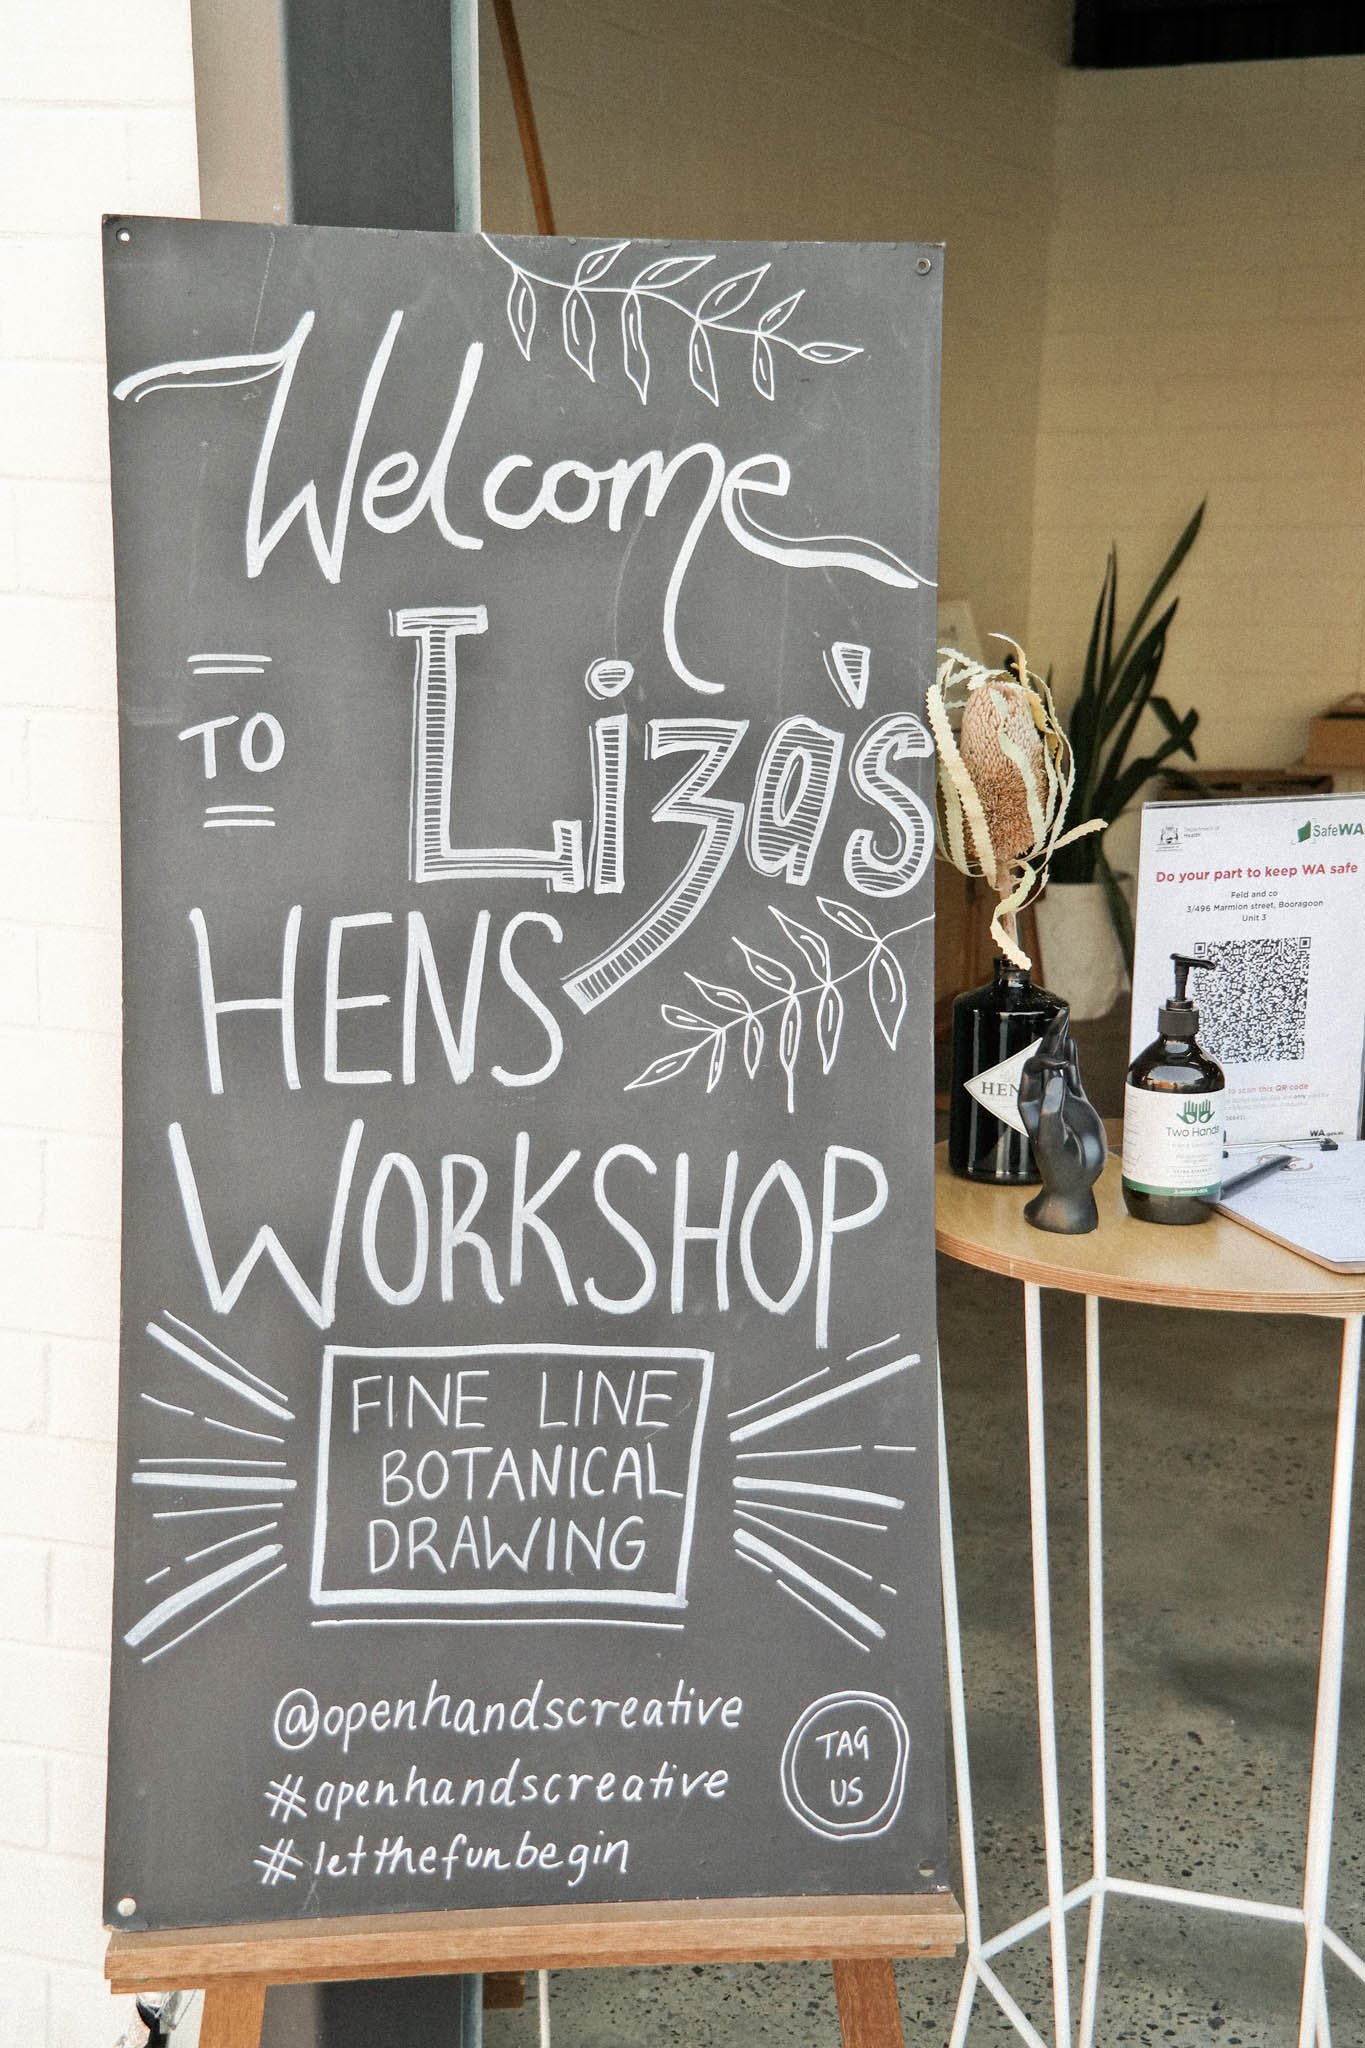 Welcome
TO
Liza's
HENS
WORKSHOP
FINE LINE
BOTANICAL
DRAWING
@openhandscreative
#openhandscreative
#letthefunbegin
TAG
US
Department of
Health
SafeWA
Do your part to keep WA safe
Feld and co
3/496 Marmion street, Booragoon
Unit 3
to scan this QR code
WA.gov.au
HEN
Two Hands